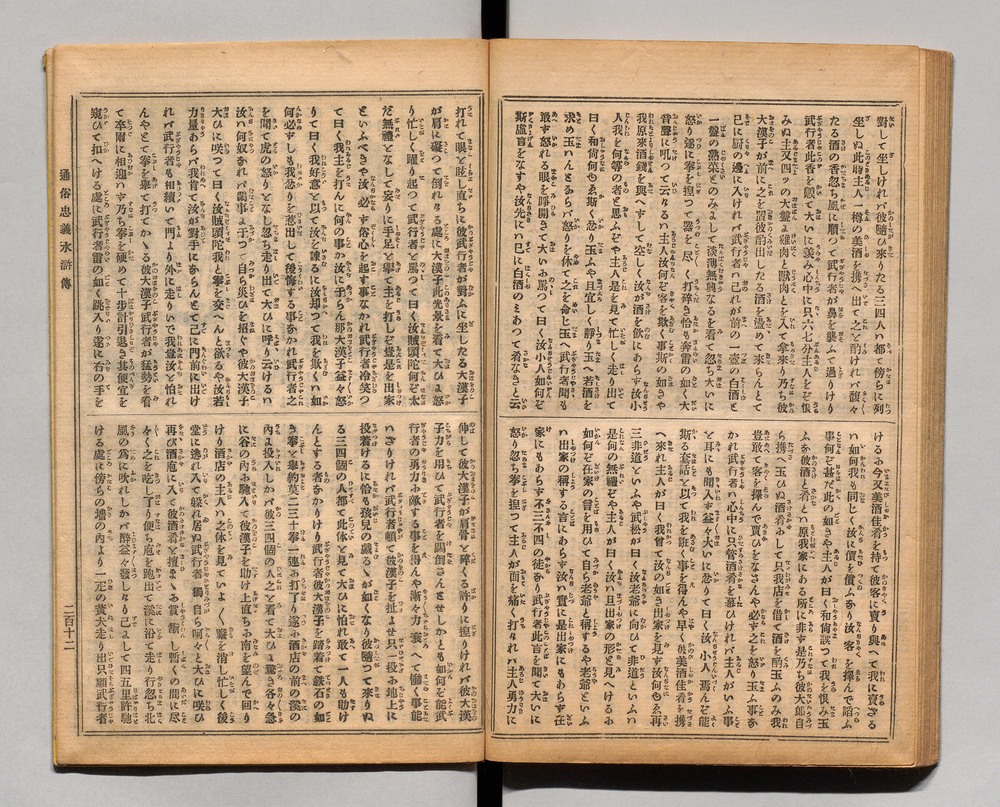 對して坐しけれバ彼隨ひ來りたる三四人ハ都て傍らに列
坐しぬ此時主人一樽の美酒を携へ出て之を酌けれバ馥々
たる酒の香忽ち風に順つて武行者が鼻を襲ふて過りけり
武行者此香を齅て大いに羨み心中に只六七分主人を恨
みぬ主又四ツの大盤よ雞肉と獸肉とを入て拿來り乃ち彼
大漢子が前に之を置彼酌出したる酒を盪めて來らんとて
己に厨の邊に入けれバ武行者ハ己が前の一壺の白酒と
一盤の熟菜とのみよして淡薄無興なるを看て忽ち大いに
怒り遂に拳を揑つて器を尽く打碎き恰も奔雷の如く大
音聲に吼つて云なるハ主人汝何ぞ客を欺く事斯の如きや
我原來酒錢を與へずして坐しく汝が酒を飲にあらず汝小
人我を何等の者と思ふぞや主人是を見て忙しく走り出て
曰く和尚何ゆゑ斯く忿り玉ふや且宜しく靜り玉へ若酒を
求め玉ハんとあらバ怒りを休て之を命じ玉へ武行者聞も
敢ず怒れる眼を睜開きて大いに罵つて曰く汝小人如何ぞ
斯虛言をなすや汝先にハ已に白酒のミあつて肴なきと云
けるが今又美酒佳肴を持て彼客に賣り與へて我に賣ざる
ハ如何我も同じく汝に價を償ふあり汝客を擇んで諂ふ
事何ぞ甚だ此の如きや主人が曰く和尚誤つて我を恨み玉
ふか彼酒と肴とハ原我家にある所に非ず是乃ち彼大郎自
ら携へ玉ひぬ酒肴おして只我店を借て酒を酌玉ふのみ我
豈敢て客を擇んで買ひをなさんや必ずを怒り玉ふ事
かれ武行者ハ心中に只管酒肴を慕ひけれバ主人がいふ事
と耳にも聞入ず益々大いに忿りて曰く汝小人焉んぞ能
斯る奎話を以て我を誑く事を得んや早く彼美酒佳肴を携
へ來れ主人が曰く我曾て汝の如き出家を見ず汝何ゆゑ再
三非道といふや武松が曰く汝我に向ひて非道といふハ
是何の無禮ぞや主人が曰く汝ハ且出家の形と見へけるお
如何ぞ在家の言を用ひて自ら老爺と稱するや老爺といふ
ハ出家の稱する言にあらず汝ハ宜に是出家にもあらず在
家にもあらず不三不四の徒あり武行者此言を聞て大いに
怒り忽ち拳を揑つて主人が面を痛く打なれバ主人勇力に
打れて眼と眩し直ちに彼武行者が對ふに坐したる大漢子
が肩に礙つて倒れける處に大漢子此光景を看て大ひよ怒
り忙しく躍り起つて武行者と罵つて曰く汝賊頭陀何ぞ太
だ無禮となして妄りに手足と擧て主を打しぞ豈是を出家
といふべきや汝必ず俗心を起す事かれ武行者冷笑つ
て曰く我主を打んに何の事か汝に于らん那大漢子益々怒
りて曰く我好意を以て汝を諫るに汝却つて我を欺くハ如
何必ずしも我忿りを惹出して後悔する事なかれ武行者之
を聞て虎の怒りとなし忽ち走り出て大ひに呼り云けるハ
汝ハ何奴なれバ閑事よ于つて自ら災ひを招くや彼大漢子
大ひに咲つて曰く汝賊頭陀我と拳を交へんと欲るや汝若
力量あらバ我肯へて汝が對手にあらんとて己に門前に出け
れバ武行者も相續ひて門より外に走りいで我豈汝と怕れ
んやとて拳を擧て打てかゝる彼大漢子武行者が猛勢を看
て卒爾に相迎ハず乃ち拳を硬めて十歩計引退き其便宜を
窺ひて扣へける處に武行者雷の如く跳入り遂に右の手を
伸して彼大漢子が肩脊と碎くる許りに揑りけれバ彼大漢
子力を用ひて武行者を踢倒さんとせしかとも如何ぞ能武
行者の勇力お敵する事を得んや漸々力衰へて働く事能
ハざりければ武行者頓て彼漢子を扯よせ只一投お地上に
投着けるに恰も孩兒の戲るゝが如くなり彼隨つて來りぬ
る三四個の人都て此体と見て大ひに怕れ敢て一人も助け
んとする者なかりけり武行者彼大漢子を踏着て鉄石の如
き拳と擧め約莫二三十拳一連お打了り遂ふ酒店の前の溪の
内よ投入しかバ彼三四個の人之と看て大ひよ驚き各々急
に谷の内お馳入て彼漢子を助け上直ちお南を望んで回り
けり酒店の主人ハ之体を見ていよく靈を消し忙しく後
堂に逃れ入て躱れ居ぬ武行者ハ獨自ら呵々と大ひに咲ひ
再び酒庖に入て彼酒肴と擅まゝお賞翫し暫くの間に尽
々く之を吃し了り便ち庖を跑出て溪に沿て走り行忽ち北
風の爲に吹れしかバ醉益々發しなり己よして四五里許馳
ける處に傍らの墻の内より一疋の黄犬走り出只顧武行者
通俗忠義水滸傳
二百十二